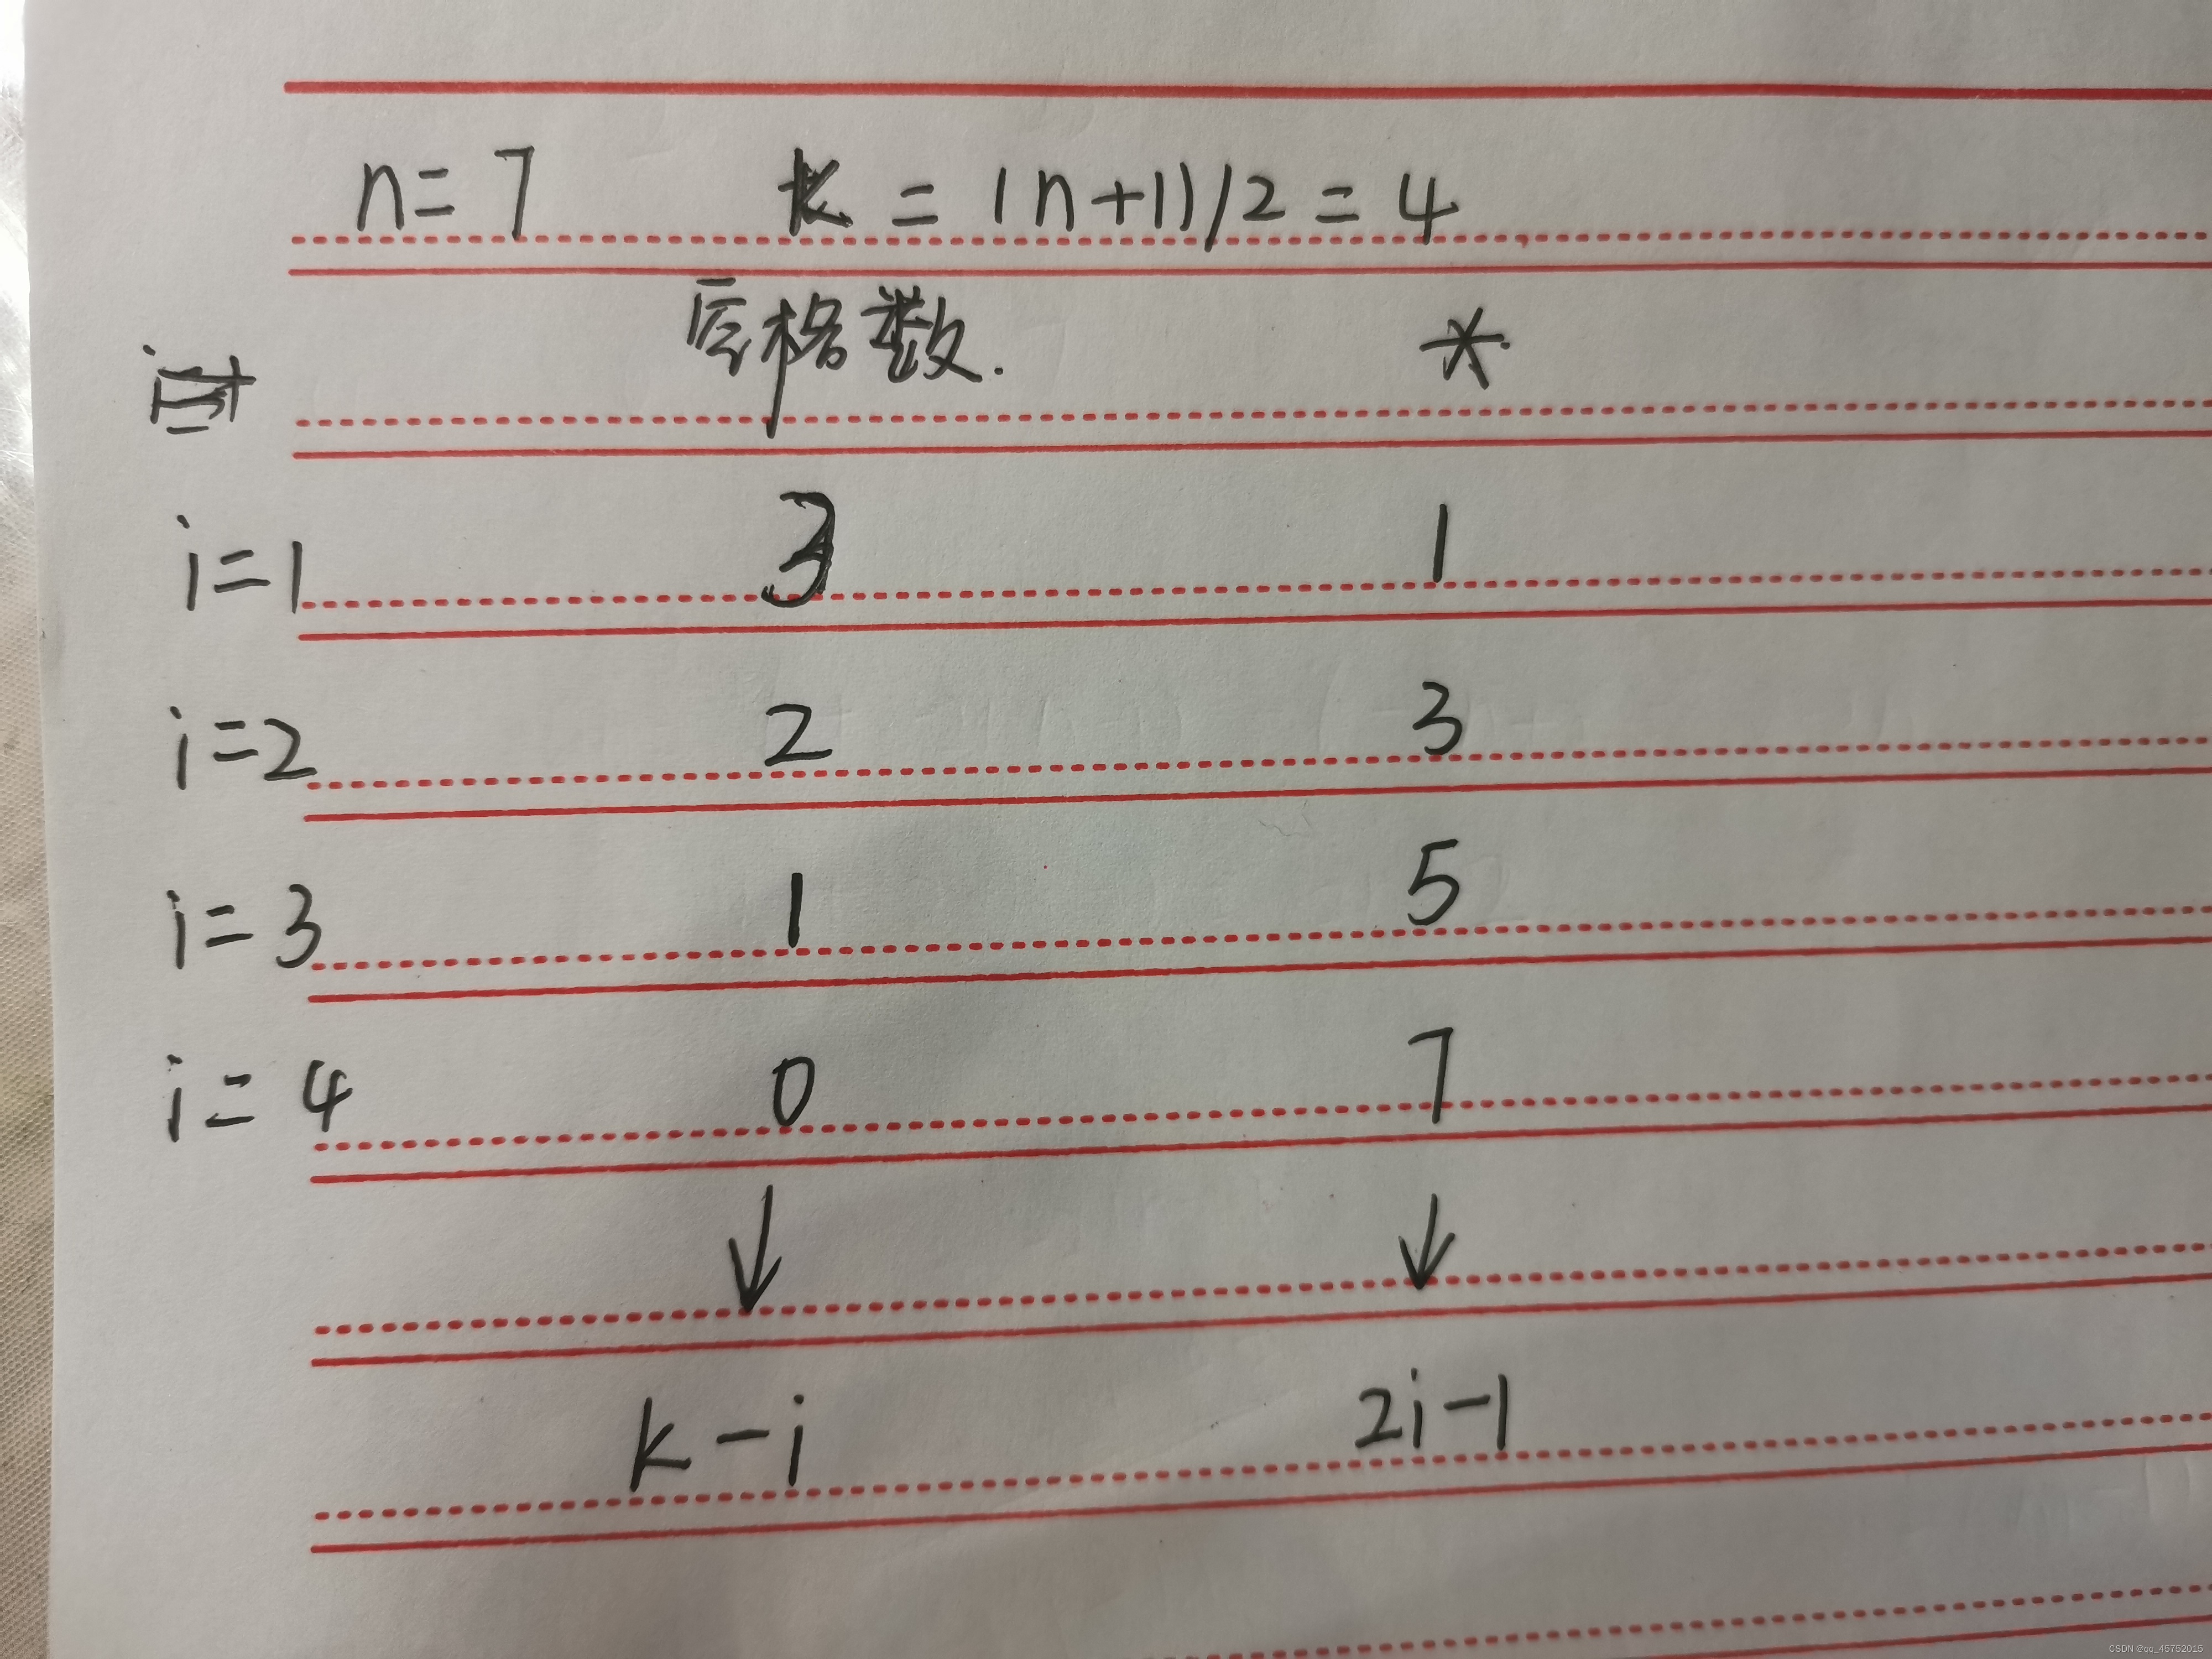 n=7 k=(n+1)/2=4
空格数. *
i=1 3 1
i=2 2 3
i=3 1 5
i=4 0 7
↓ ↓
k-i 2i-1
CSDN @qq_45752015